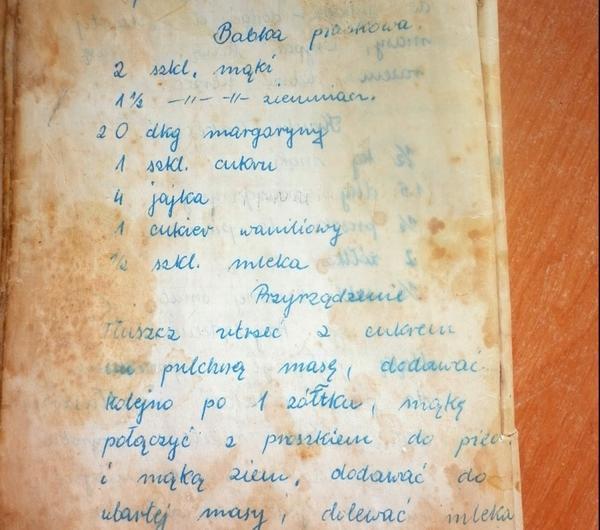 Babka piaskowa.
2 szkl. mąki
1 ½ -"- -"- ziemniacz.
20 dkg margaryny
1 szkl. cukru
4 jajka
1 cukier waniliowy
½ szkl. mleka
Przyrządzenie
Tłuszcz utrzeć z cukrem
na pulchną masę, dodawać
kolejno po 1 żółtku, mąkę
połączyć z proszkiem do piecz
i mąką ziem. dodawać do
utartej masy, dolewać mleka